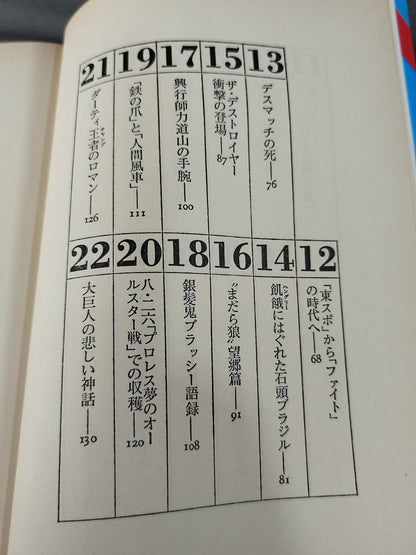 12
「東スポ」から「ファイト」
の時代へ──68
13
デスマッチの死──76
14
飢餓にはぐれた石頭ブラジル──81
ハングリー
15
ザ・デストロイヤー
衝撃の登場──87
16
〝まだら狼〟望郷篇──91
17
興行師力道山の手腕──100
18
銀髪鬼ブラッシー語録──108
19
「鉄の爪」と「人間風車」──111
20
八・二六「プロレス夢のオー
ルスター戦」での収穫──120
21
ダーティ王者のロマン──126
チャンプ
22
大巨人の悲しい神話──130